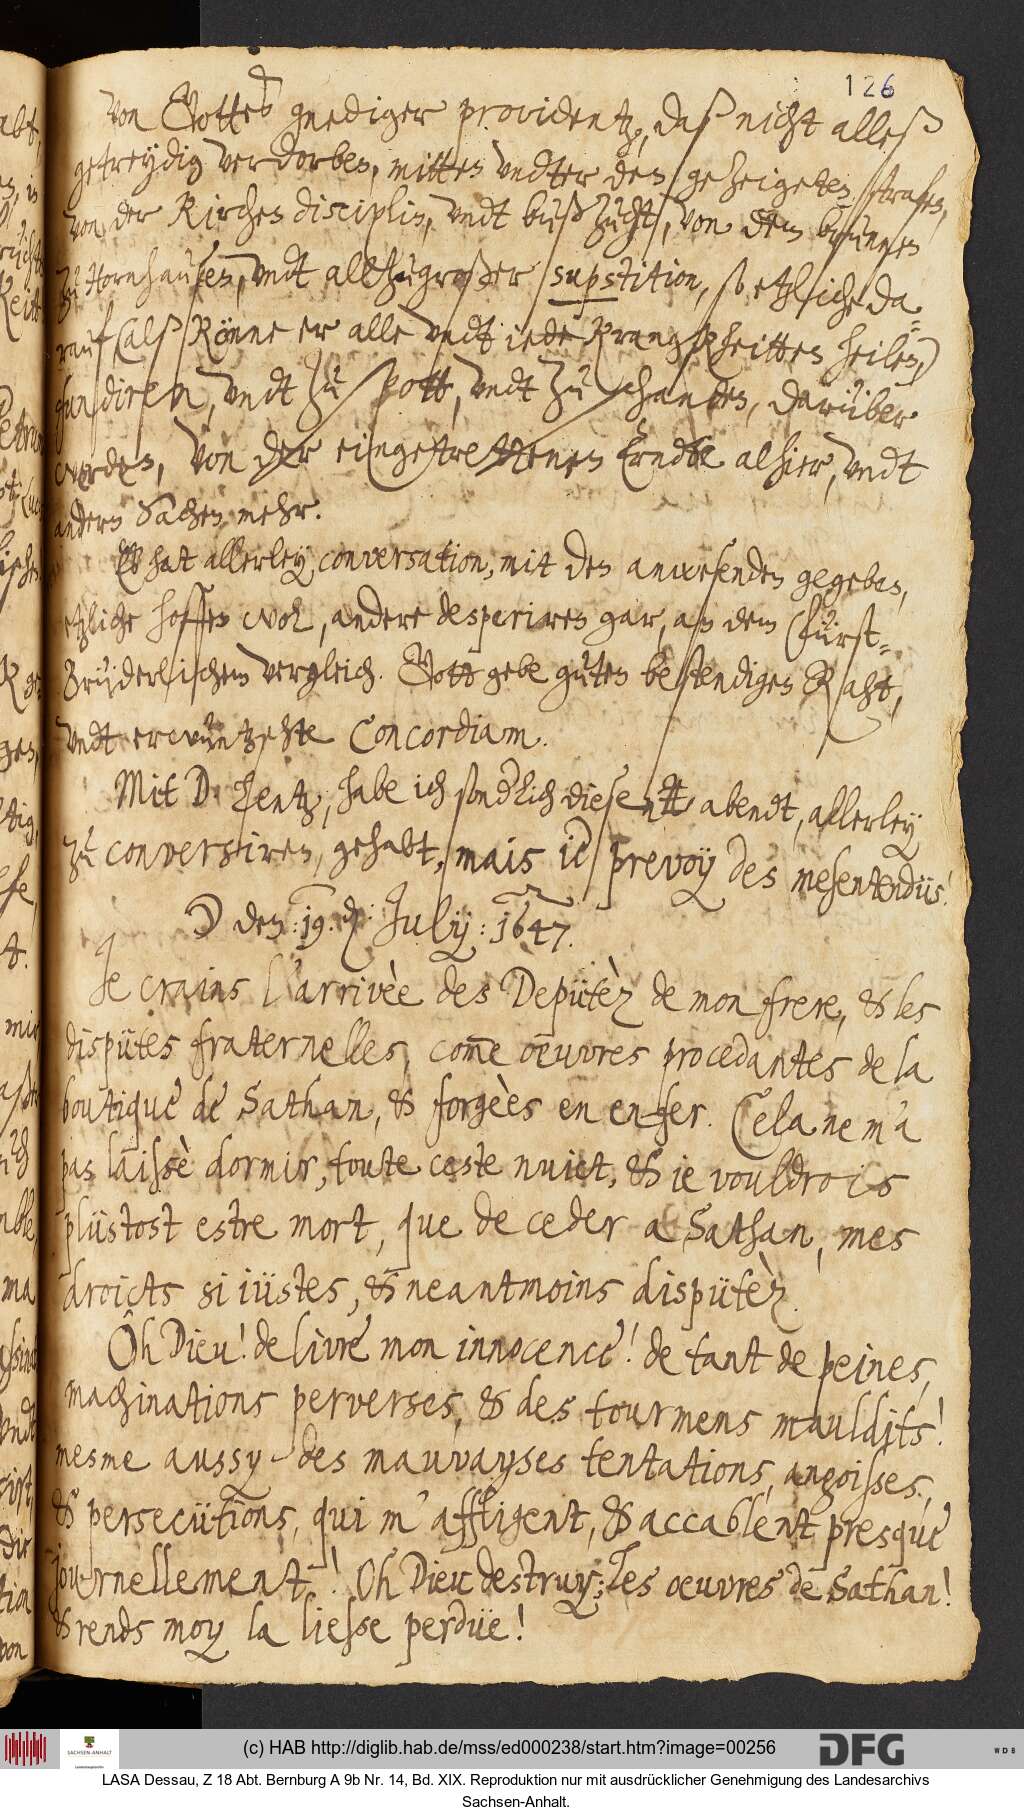 126
von Gottes gnediger providentz, daß nicht alleß
getreydig verdorben, mitten vndter den gezeigeten strafen,
von der Kirchen disciplin, vndt buß zucht, von dem brunnen
zu Hornhausen, vndt allzugroßer superstition, so etzliche da¬
rauf (alß könne er alle vndt iede Kranckheitten heilen)
fundiren, vndt zu spott, vndt zu schanden, darüber
werden, von der eingetrettenen Erndte alhier, vndt
andern sachen mehr.
Es hat allerley conversation, mit den anwesenden gegeben,
etzliche hoffen wol, andere desperiren gar, an dem (Fürst¬
Brüderlischem vergleich. Gott gebe guten bestendigen Raht,
vndt erwüntzschte Concordiam.
Mit D. Mentz, habe ich sonderlich diesen abendt, allerley
zu conversiren, gehabt, mais je prevoy des mesentendus!
☽ den: 19. July: 1647.
Je crains l'arrivèe des Deputèz de mon frere, & les
disputes fraternelles, come oeuvres procedantes de la
boutique de Sathan, & forgèes en enfer. Cela ne m'a
pas laissè dormir, toute ceste nuict, & ie vouldrois
plustost estre mort, que de ceder a Sathan, mes
droicts si iustes, & neantmoins disputèz.
Oh Dieu! delivre mon innocence! de tant de peines,
machinations perverses, & des tourmens mauldits!
mesme aussy des mauvayses tentations, angoisses,
& persecutions, qui m'affligent, & accablent presque
journellement! Oh Dieu destruy: les oeuvres de Sathan!
& rends moy la liesse perdue!
SACHSEN-ANHALT
(c) HAB http://diglib.hab.de/mss/ed000238/start.htm?image=00256
DFG
WDB
LASA Dessau, Z 18 Abt. Bernburg A 9b Nr. 14, Bd. XIX. Reproduktion nur mit ausdrücklicher Genehmigung des Landesarchivs
Sachsen-Anhalt.